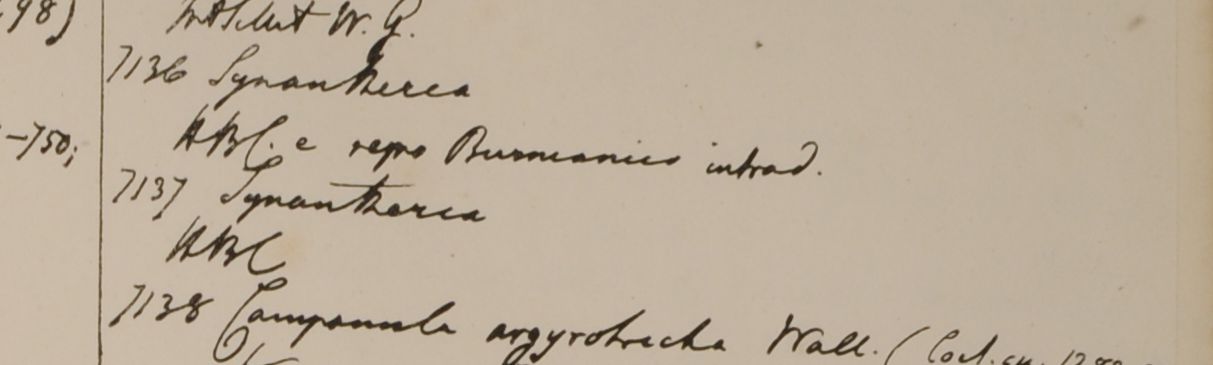 98)
W. G.
7136 Synantherea
HBC. e regno Burmanico introd.
-750;
7137 Synantherea
HBC
7138 Campanula argyrotricha Wall. (